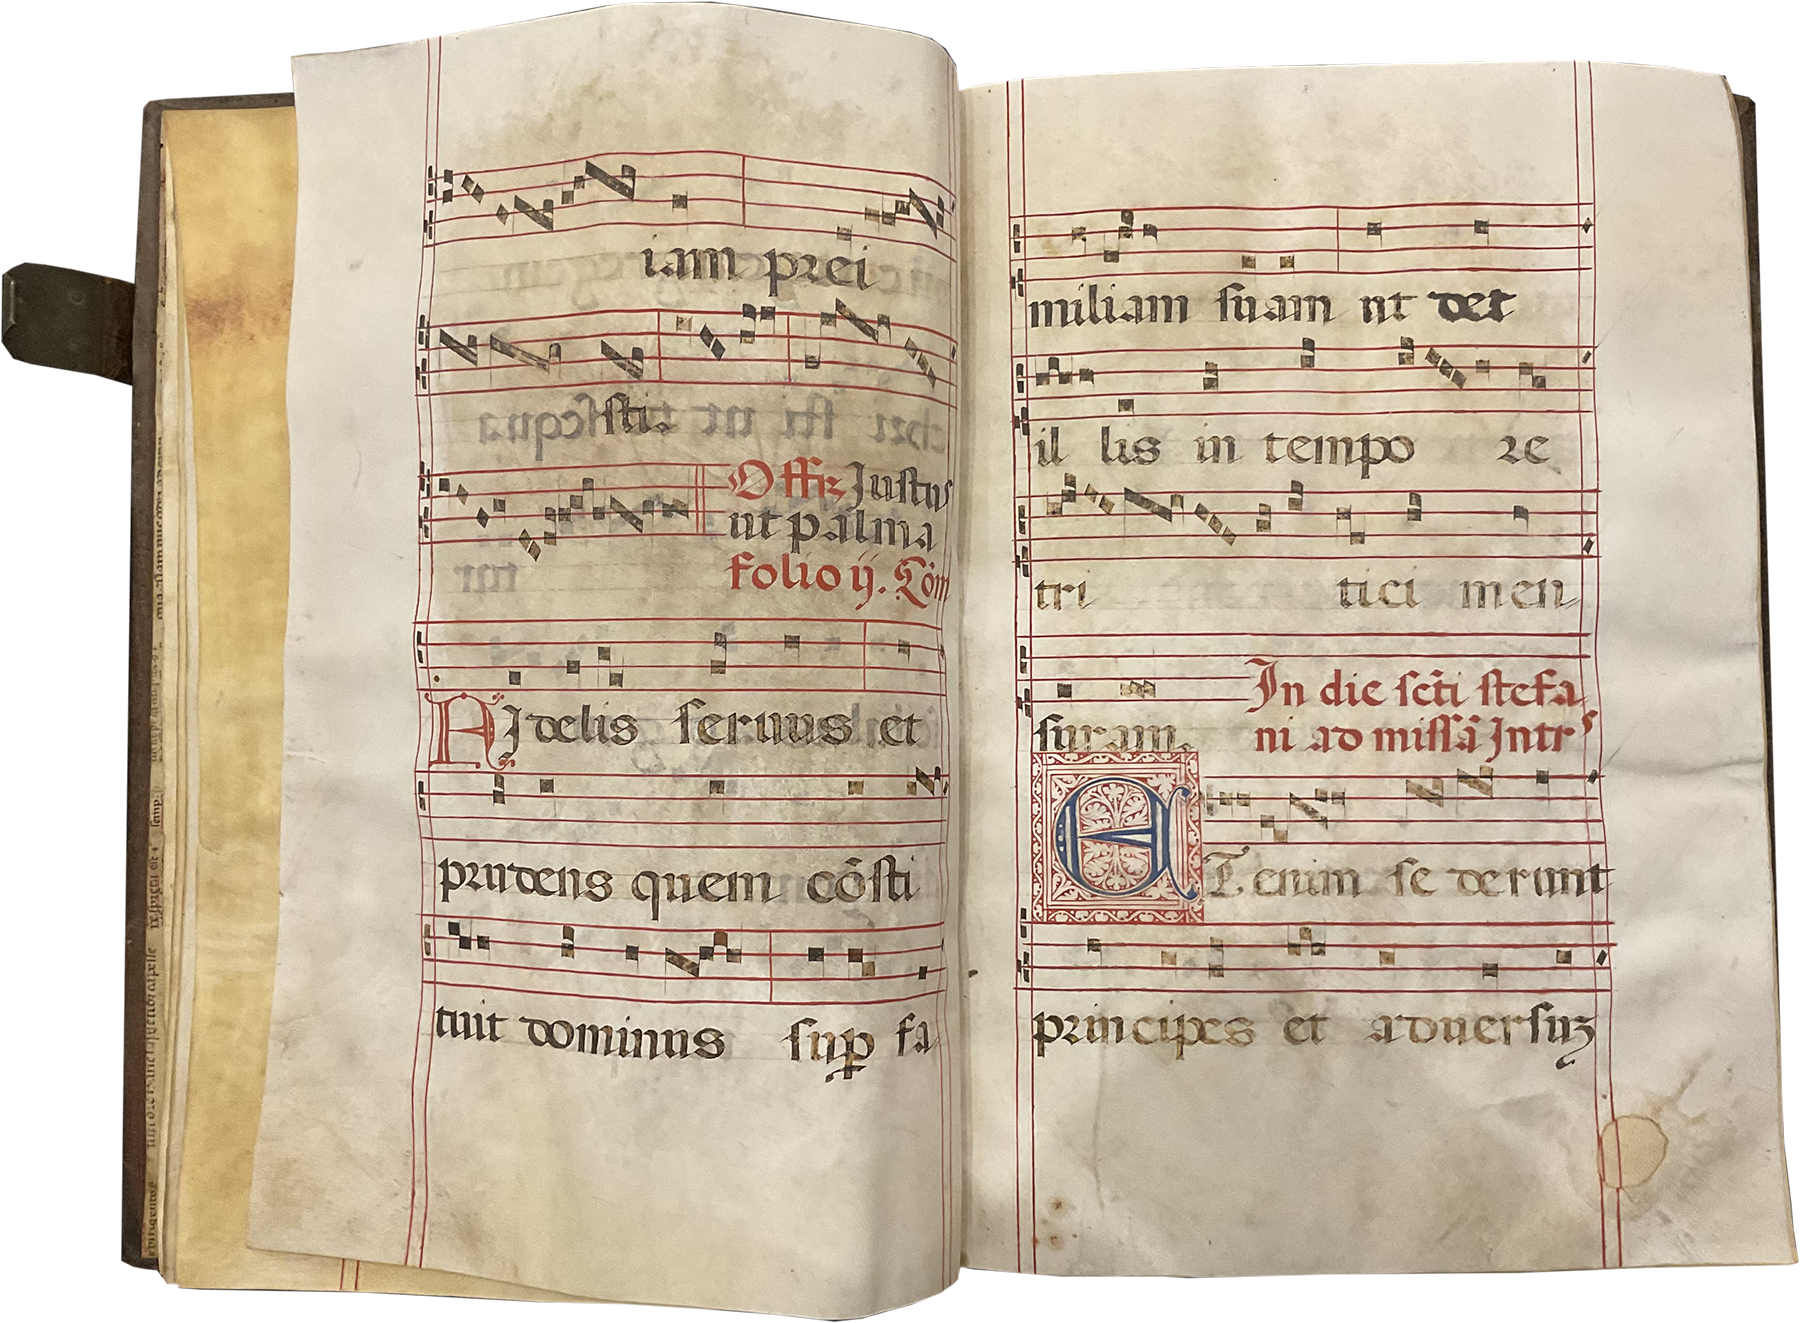 iam prei
sti.
Offr Justus
ut palma
folio ij. Cōm
FIdelis seruus et
prudens quem cōsti
tuit dominus sup fa
miliam suam ut det
il lis in tempo re
tri tici men
suram.
In die scti stefa
ni ad missā Intr
ETenim se derunt
principes et aduersuʒ